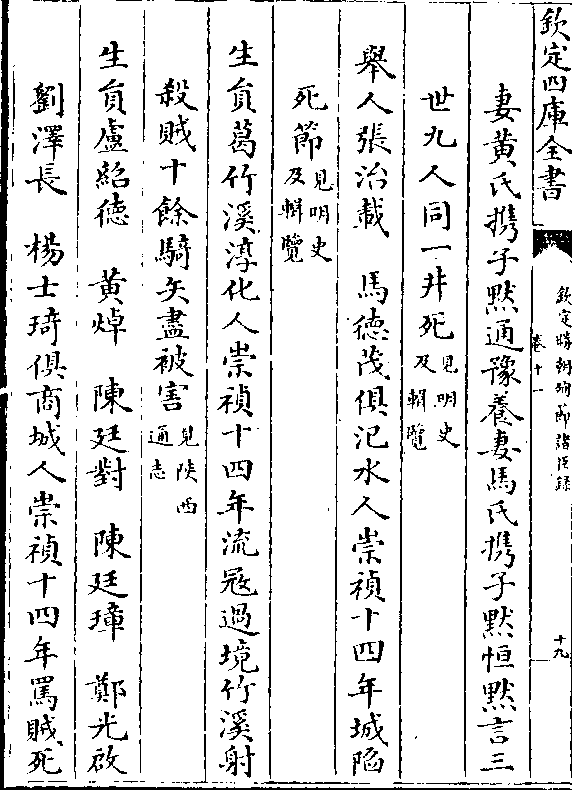 欽定四庫全書
欽定勝朝殉節諸臣錄
卷十一
十九
妻黄氏携子黙通豫養妻馬氏携子黙恒黙言三
世九人同一井死見明史及輯覽
舉人張治載　馬德茂俱汜水人崇禎十四年城陷
死節見明史及輯覽
生員葛竹溪淳化人崇禎十四年流冦過境竹溪射
殺賊十餘騎矢盡被害見陜西通志
生員盧紹德　黄焯　陳廷對　陳廷璋　鄭光啟
劉澤長　楊士琦俱商城人崇禎十四年罵賊死